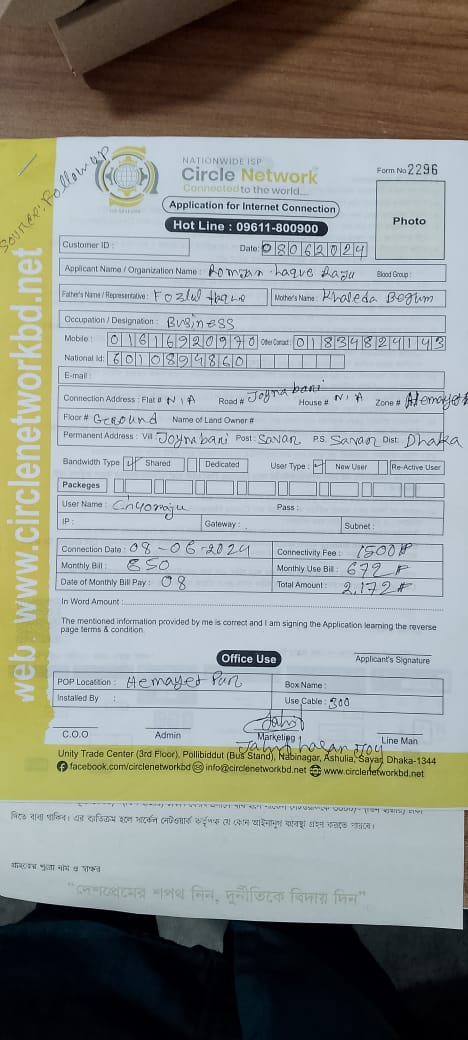 Source: Follow up
NATIONWIDE ISP
Circle Network
Connected to the world....
Form No 2296
Application for Internet Connection
Hot Line : 09611-800900
Photo
Customer ID : Date: 08062024
Applicant Name / Organization Name : Romjan Haque Raju Blood Group :
Father's Name / Representative : Fozlul Haque Mother's Name : Khaleda Begum
Occupation / Designation : Business
Mobile : 01616920970 Other Contact : 01834824143
National Id: 6010894860
E-mail :
Connection Address : Flat # N/A Road # Joynabari House # N/A Zone # Hemayet
Floor # Geround Name of Land Owner #
Permanent Address : Vill Joynabari Post: Savar P.S. Savar Dist: Dhaka
Bandwidth Type Shared Dedicated User Type : New User Re-Active User
Packeges
User Name : Pass :
IP : Gateway : Subnet :
Connection Date : 08-06-2024 Connectivity Fee : 1500#
Monthly Bill : 850 Monthly Use Bill : 672#
Date of Monthly Bill Pay : 08 Total Amount : 2,172#
In Word Amount :
The mentioned information provided by me is correct and I am signing the Application learning the reverse
page terms & condition.
Office Use
Applicant's Signature
POP Locatition : Hemayet Pur Box Name :
Installed By : Use Cable : 300
C.O.O Admin Marketing Line Man
Unity Trade Center (3rd Floor), Pollibiddut (Bus Stand), Nabinagar, Ashulia, Savar, Dhaka-1344
facebook.com/circlenetworkbd info@circlenetwork.net www.circlenetworkbd.net
web : www.circlenetworkbd.net
দিতে বাধ্য থাকিব। এর ব্যতিক্রম হলে সার্কেল নেটওয়ার্ক কর্তৃপক্ষ যে কোন আইনানুগ ব্যবস্থা গ্রহণ করতে পারবে।
গ্রাহকের পুরো নাম ও স্বাক্ষর
"দেশপ্রেমের শপথ নিন, দুর্নীতিকে বিদায় দিন"